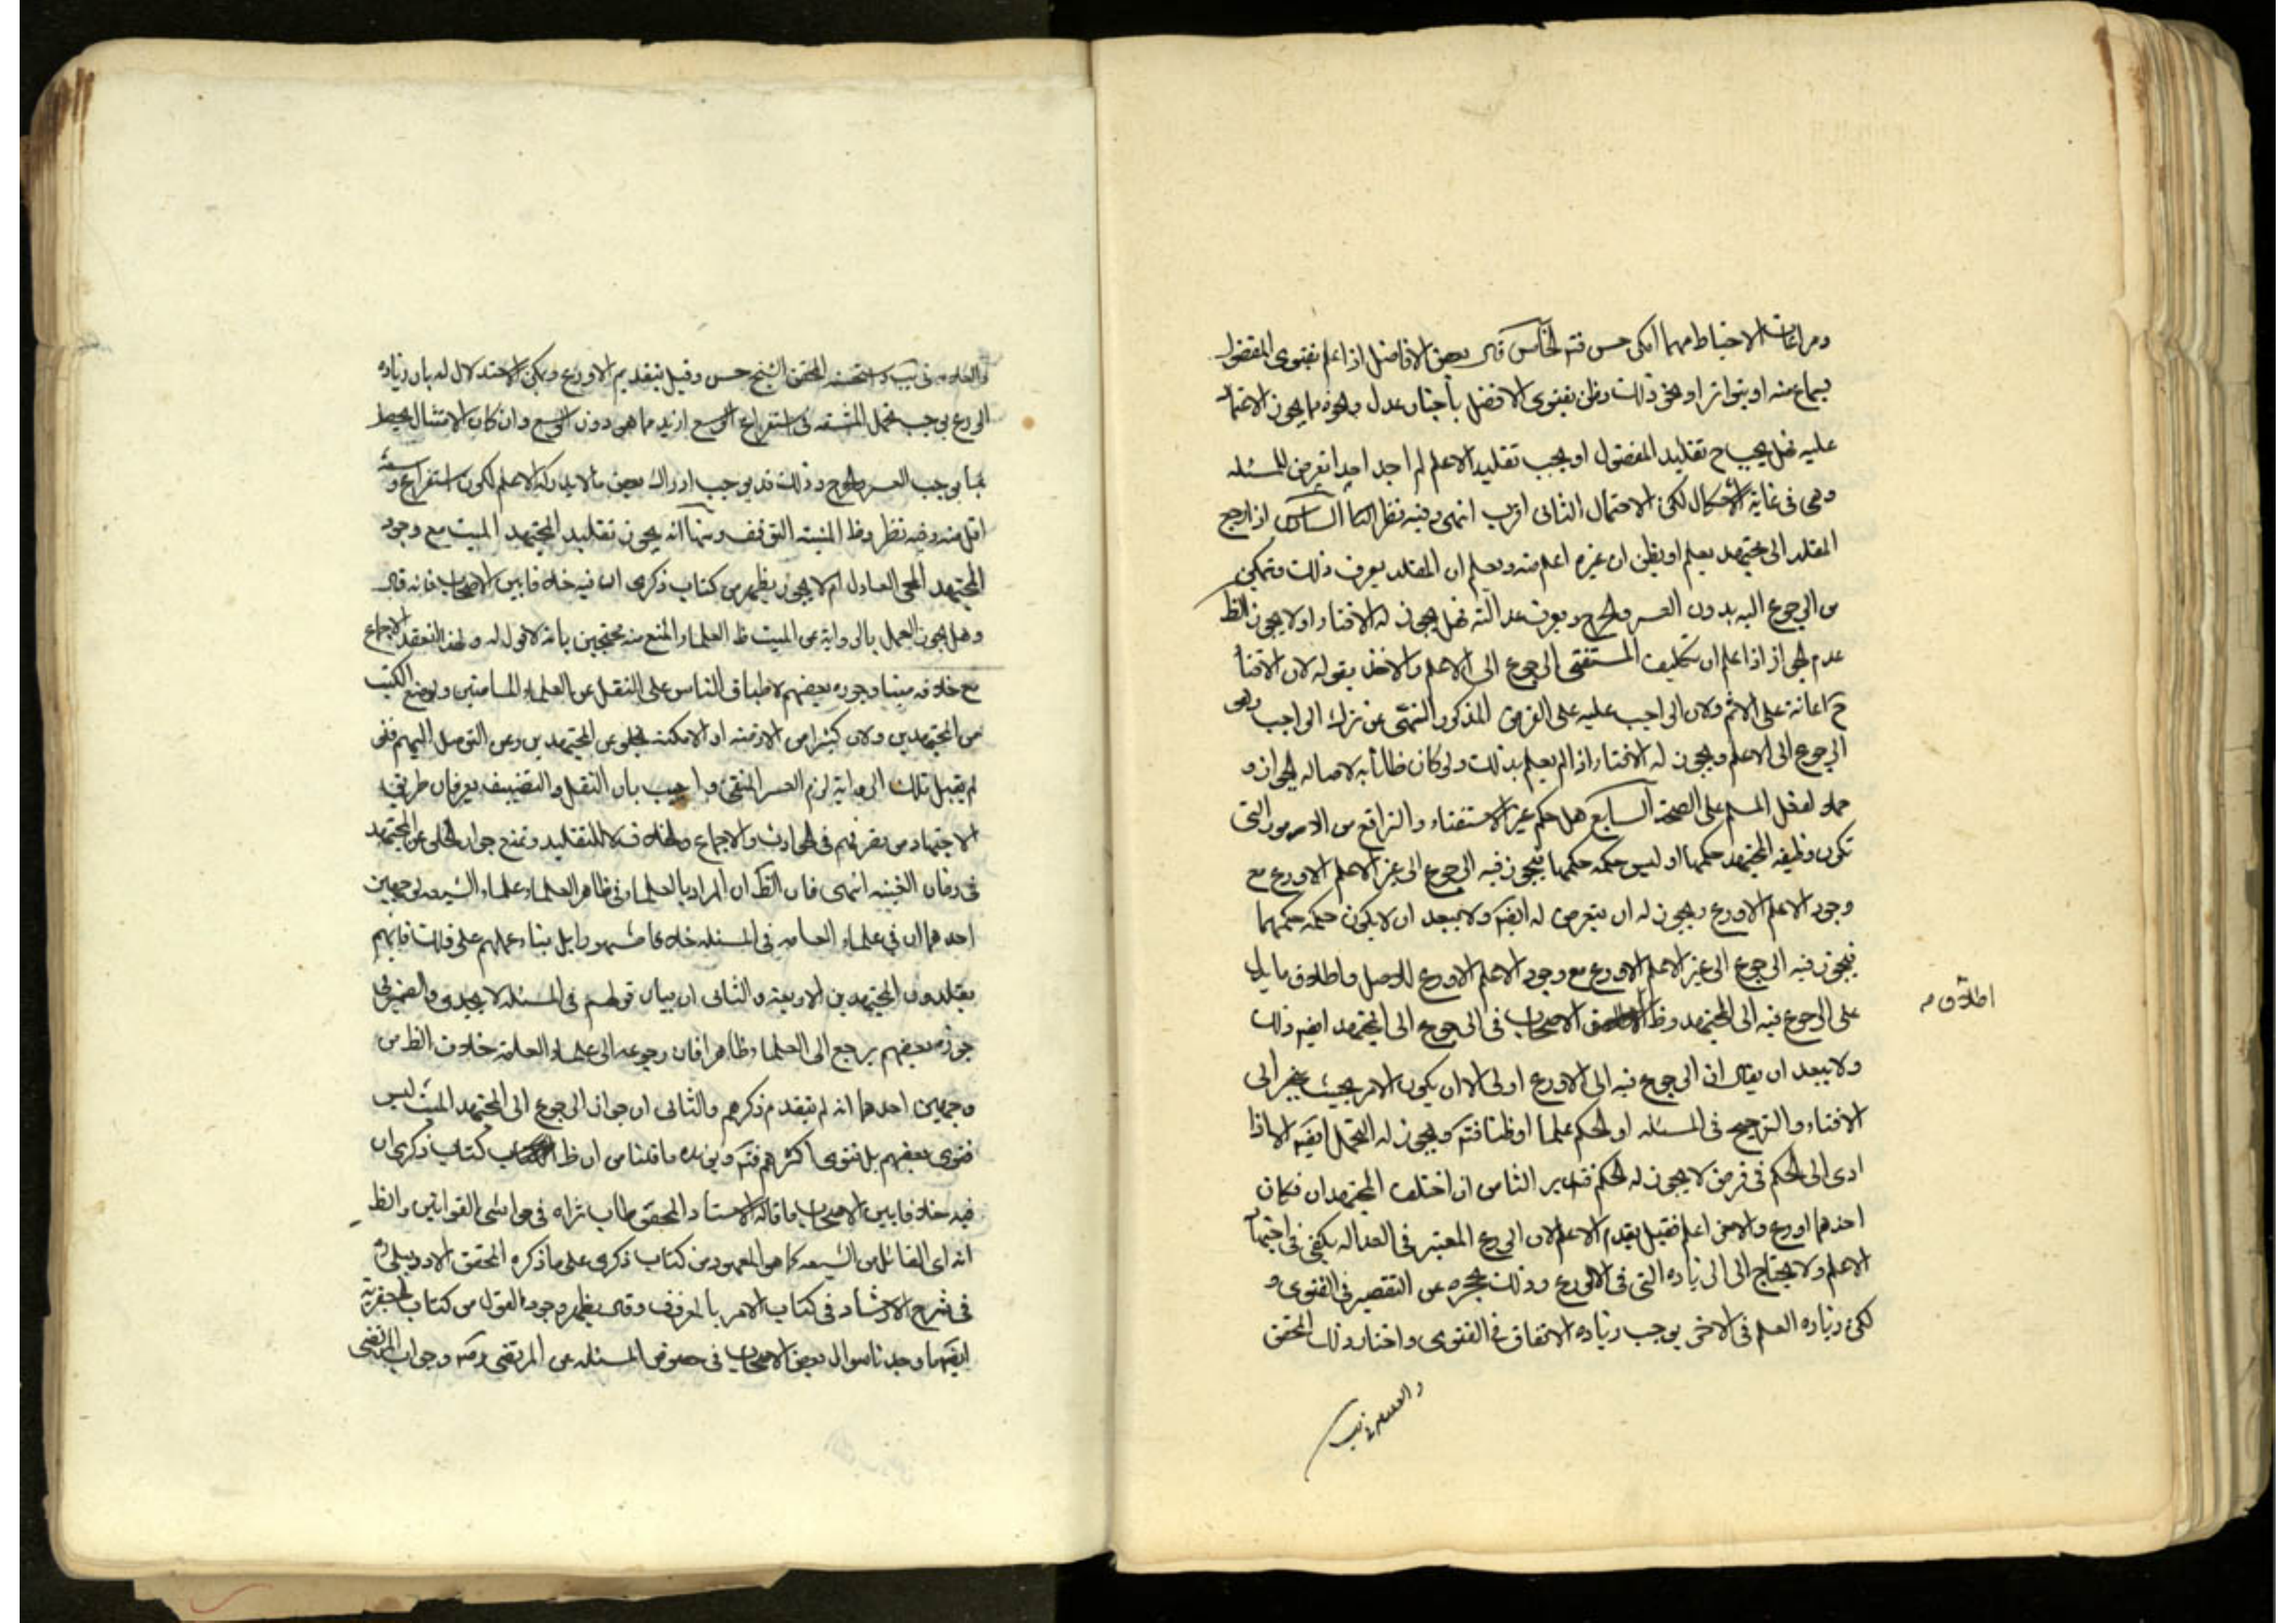 ومراعات الاحتياط مهما امكن حسن فتم الخامس قال بعض الافاضل اذا علم بفتوى المفضول
بسماع منه او بتواتر او نحو ذلك وظن بفتوى الافضل باخبار عدل ونحوه مما يجوز الاعتماد
عليه فهل يجب ح تقليد المفضول او يجب تقليد الاعلم لم اجد احدا تعرض للمسئله
وهى فى غاية الاشكال لكن الاحتمال الثانى اقرب انتهى وفيه نظر السادس اذا رجع
المقلد الى مجتهد يعلم او يظن ان غيره اعلم منه ويعلم ان المقلد يعرف ذلك وتمكن
من الرجوع اليه بدون العسر والحرج ويعرف عدالته فهل يجوز له الافتاء او لا يجوز الظ
عدم الجواز اذا علم ان تكليف المستفتى الرجوع الى الاعلم والاخذ بقوله لان الافتاء
ح اعانة على الاثم ولان الواجب عليه على الفرض المذكور النهى عن ترك الواجب وهو
الرجوع الى الاعلم ويجوز له الافتاء اذا لم يعلم بذلك ولو كان ظانا به لاصاله الجواز و
حملا لفعل المسلم على الصحة السابع هل حكم غير الاستفتاء والترافع من الامور التى
تكون وظيفه المجتهد حكمها او ليس حكمه حكمها فيجوز فيه الرجوع الى غير الاعلم الاورع مع
وجود الاعلم الاورع ويجوز له ان يتعرض له ايضا ولا يبعد ان لا يكون حكمه حكمهما
فيجوز فيه الرجوع الى غير الاعلم الاورع مع وجود الاعلم الاورع للاصل واطلاق ما يدل
على الرجوع فيه الى المجتهد وظ الاصحاب فى الرجوع الى المجتهد ايضا ذلك
اطلاق م
ولا يبعد ان يقال ان الرجوع فيه الى الاورع اولى الا ان يكون الامر بحيث ينجر الى
الافتاء والترجيح فى المسئله او الحكم علما او ظنا فتم ويجوز له التحمل ايضا الا اذا
ادى الى الحكم فى فرض لا يجوز له الحكم فتدبر الثامن ان اختلف المجتهدان فكان
احدهما اورع والاخر اعلم فقيل يقدم الاعلم لان الورع المعتبر فى العداله يكفى فى اجتهاد
الاعلم ولا يحتاج الى الزياده التى فى الاورع وذلك يحجره عن التقصير فى الفتوى و
لكن زياده العلم فى الاخر يوجب زياده الاتقان فى الفتوى واختار ذلك المحقق
والعلامه فى يب
والعلامه فى يب واستحسنه المحقق الشيخ حسن وقيل بتقديم الاورع ويمكن الاستدلال له بان زياده
الورع يوجب تحمل المشقه فى استفراغ الوسع ازيد مما هى دون الوسع وان كان الامتثال يحصل
بما يوجب العسر والحرج وذلك قد يوجب ادراك بعض ما لا يدركه الاعلم لكون استفراغ وسعه
اقل منه وفيه نظر وظ المنيه التوقف ومنها انه يجوز تقليد المجتهد الميت مع وجود
المجتهد الحى العادل ام لا يجوز يظهر من كتاب ذكرى ان فيه خلافا بين الاصحاب فانه قال
وهل يجوز العمل بالروايه عن الميت ظ العلماء المنع منه محتجين بانه لا قول له ولهذا انعقد الاجماع
مع خلافه ميتا وجوزه بعضهم لاطباق الناس على النقل عن العلماء الماضين ولوضع الكتب
من المجتهدين ولان كثيرا من الازمنه او الامكنه تخلو عن المجتهدين وعن التوصل اليهم فلو
لم يقبل تلك الروايه لزم العسر المنفى واجيب بان النقل والتصنيف يعرفان طريق
الاجتهاد من تصرفهم فى الحوادث والاجماع والخلاف لا للتقليد ونمنع جواز الخلو عن المجتهد
فى زمان الغيبه انتهى فان الظ ان المراد بالعلماء فى ظاهر العلماء علماء الشيعه لوجهين
احدهما ان فى علماء العامه فى المسئله خلافا مشهورا بل بناء عملهم على ذلك فانهم
يقلدون المجتهدين الاربعه والثانى ان بيان قولهم فى المسئله لا يجدى والضمير فى
جوزه بعضهم يرجع الى العلماء ظاهرا فان رجوعه الى علماء العامه خلاف الظ من
وجهين احدهما انه لم يتقدم ذكرهم والثانى ان جواز الرجوع الى المجتهد الميت ليس
فتوى بعضهم بل فتوى اكثرهم فتم ويؤيده ما قلنا من ان ظ كتاب ذكرى ان
فيه خلافا بين الاصحاب ما قاله الاستاد المحقق طاب ثراه فى حواشى القوانين والظ
انه اى القائل من الشيعه كما هو المعهود من كتاب ذكرى على ما ذكره المحقق الاردبيلى ره
فى شرح الارشاد فى كتاب الامر بالمعروف وقال يظهر وجود القول من كتاب الجعفريه
ايضا ما وجدنا سوال بعض الاصحاب فى خصوص المسئله عن المرتضى رضه وجواب المرتضى